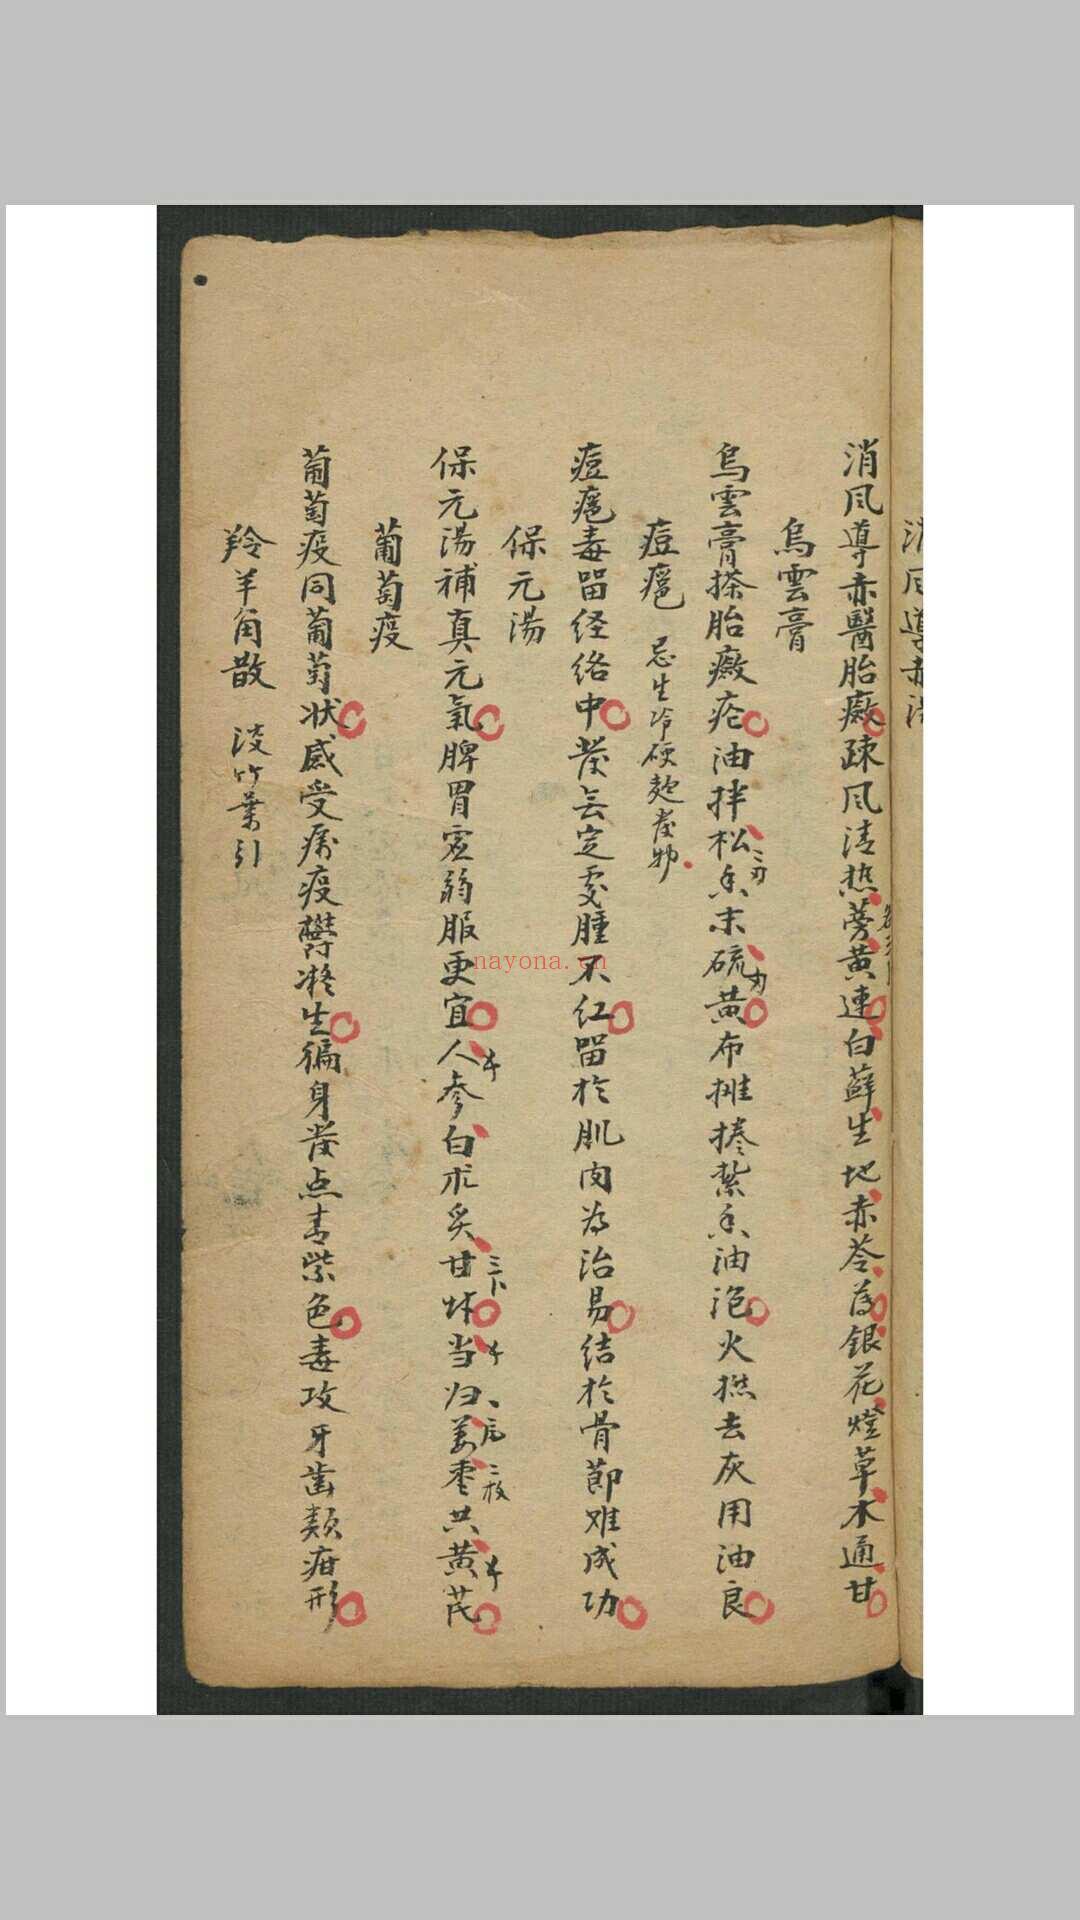 消风導赤湯
消风導赤醫胎癜疎风清热蒡黄連白蘚生地赤苓薄銀花燈草木通甘
烏雲膏
烏雲膏搽胎癜疮油拌松香末硫黄布摊捲紮香油泡火撚去灰用油良
痘㿺 忌生冷硬麪發物
痘㿺毒畱经络中發無定處腫不红畱於肌肉为治易结於骨節难成功
保元湯
保元湯補真元氣脾胃虚弱服更宜人參白朮炙甘艸当归姜枣共黄芪
葡萄疫
葡萄疫同葡萄状感受疠疫欝凝生徧身發点青紫色毒攻牙齒類疳形
羚羊角散 淡竹葉引
nayona.cn